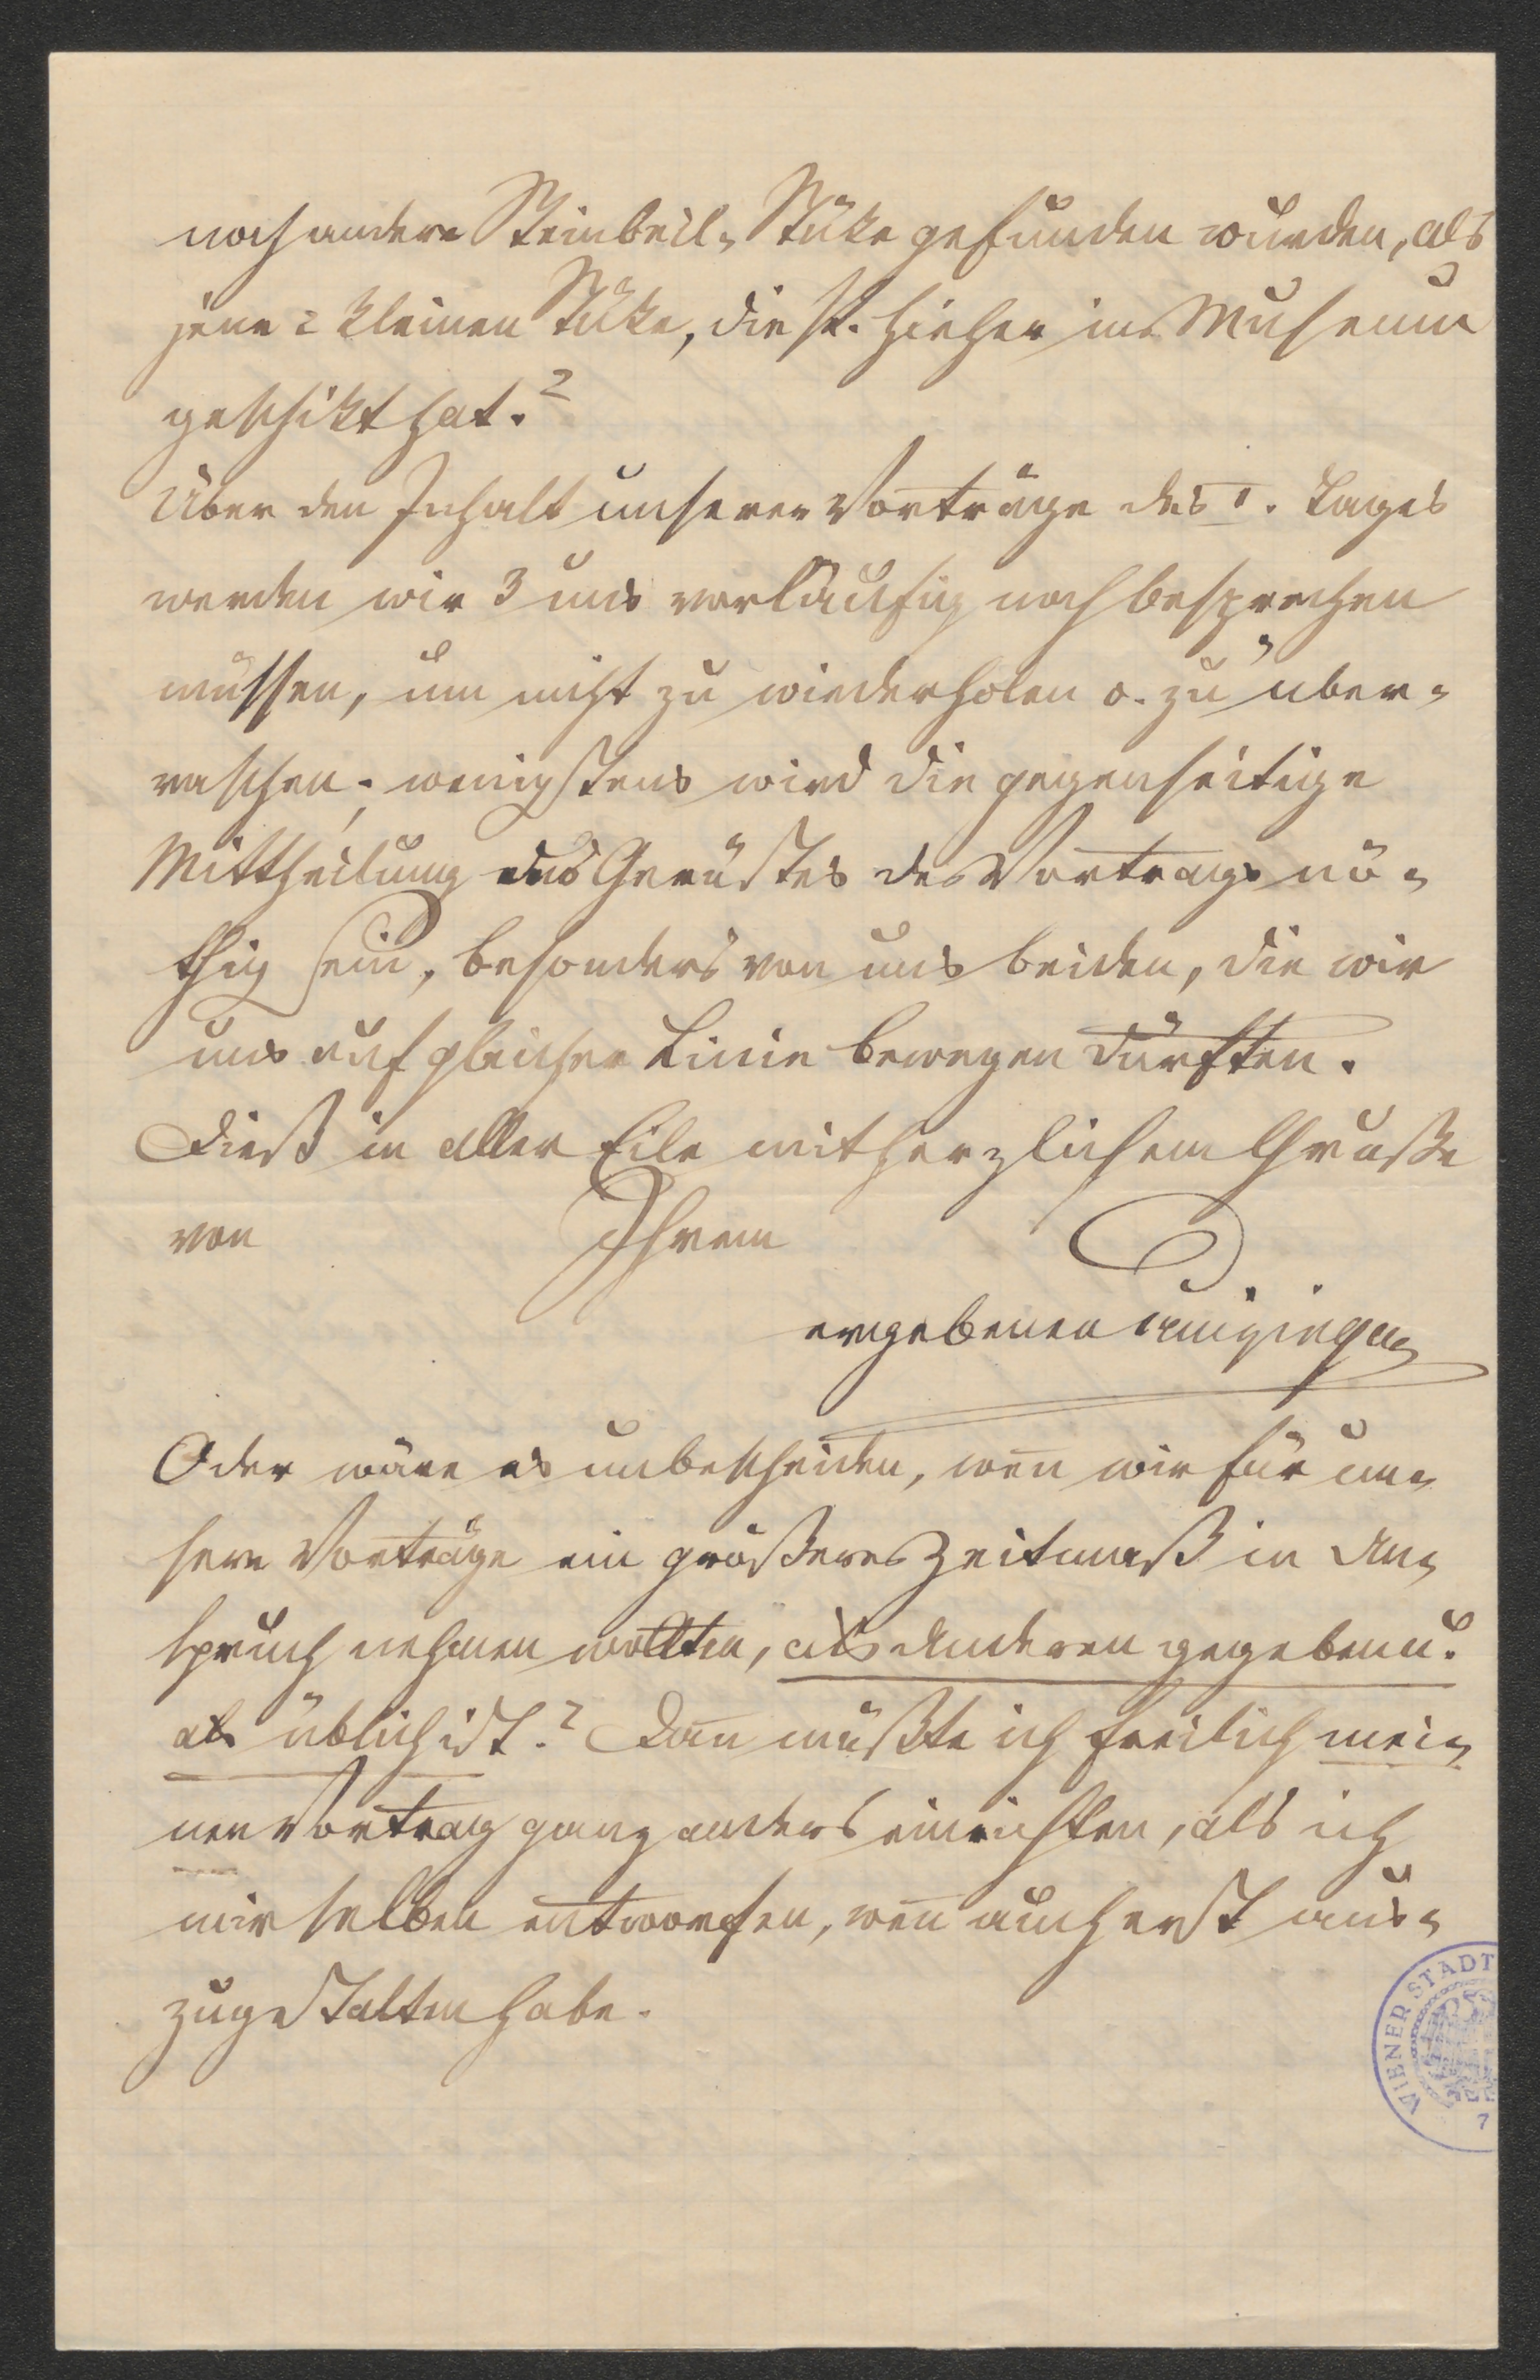 noch andere Steinbeil-Stüke gefunden wurden, als
jene 2 kleinen Stüke, die hieher ins Museum
geschikt hat.?
Über den Inhalt unserer Vorträge des I. Tages
werden wir 3 uns vorläufig noch besprechen
müssen, um nicht zu wiederholen o. zu über-
raschen; wenigstens wird die gegenseitige
Mittheilung des Gerüstes des Vortrags nö-
thig sein, besonders von uns beiden, die wir
uns auf gleicher Linie bewegen dürften.
Dieß in aller Eile mit herzlichem Gruße
von Ihrem
ergebenen
Oder wäre es unbescheiden, wen̅ wir für un-
sere Vorträge ein größeres Zeitmaß in An-
spruch nehmen wollten, als Anderen gegeben u.
als üblich ist? Dan̅ müßte ich freilich mei-
nen Vortrag ganz anders einrichten, als ich
mir selben entworfen, wen̅ auch erst aus-
zugestalten habe.
WIENER STADT
7